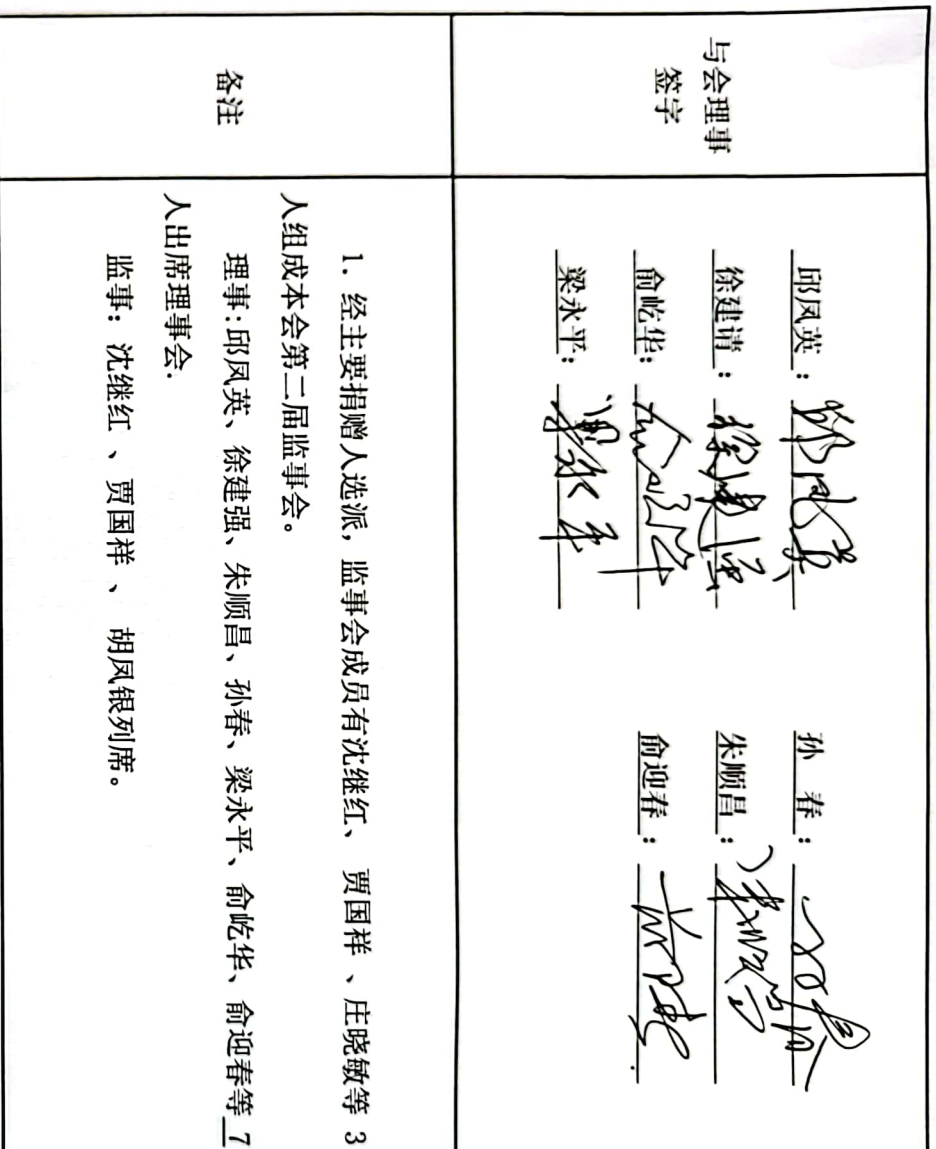 与会理事
签字
邱凤英：邱凤英 孙 春：孙春
徐建请：徐建强 朱顺昌：朱顺昌
俞屹华：俞屹华 俞迎春：
梁永平：梁永平
备注
1. 经主要捐赠人选派，监事会成员有沈继红、贾国祥、庄晓敏等 3
人组成本会第二届监事会。
理事：邱凤英、徐建强、朱顺昌、孙春、梁永平、俞屹华、俞迎春等 7
人出席理事会.
监事：沈继红、贾国祥、胡凤银列席。